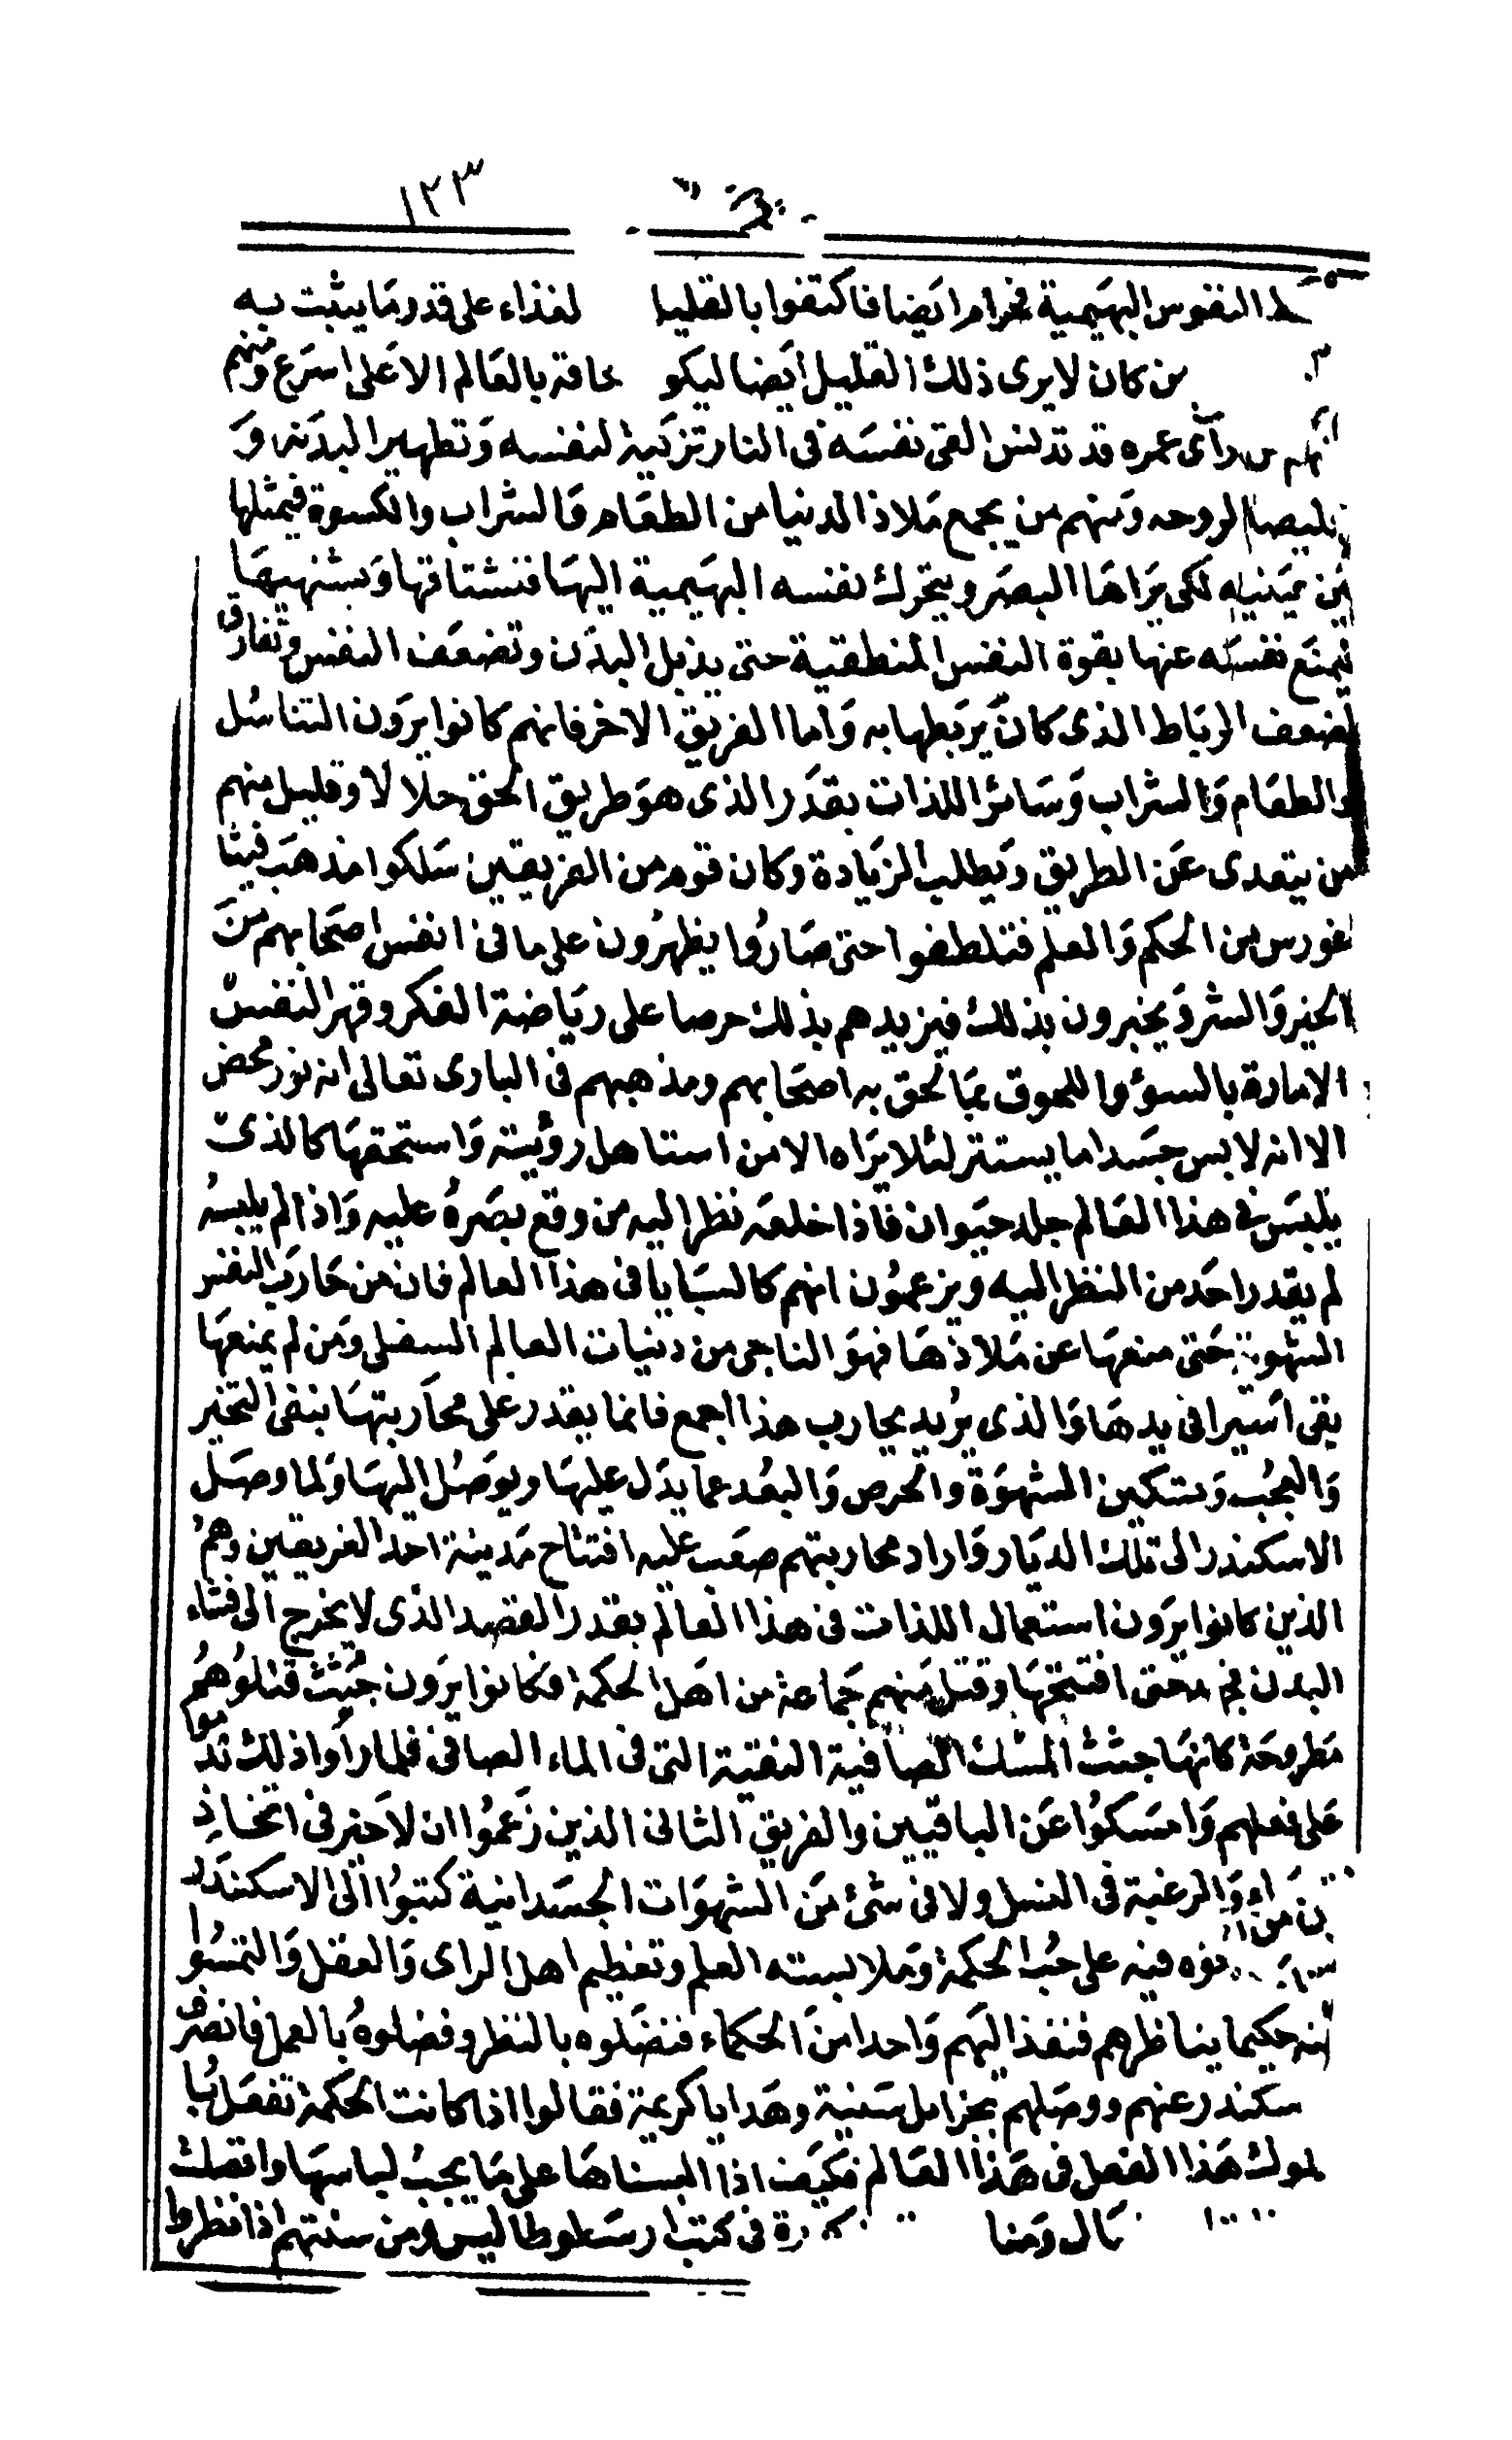 ١٢٣
النفوس البهيمية فحرام ايضا فاكتفوا بالقليل لغذاء على قدر ما يثبت به
من كان لا يرى ذلك القليل ايضا ليكو حاقه بالعالم الاعلى اسرع ومنهم
من رآى عمره قد تدنس القى نفسه فى النار تزكية لنفسه وتطهيرا لبدنه و
لروحه ومنهم من يجمع ملاذ الدنيا من الطعام والشراب والكسوة فيمثلها
عينيه لكى يراها البصر ويتحرك نفسه البهيمية اليها فتشتاقها ويشتهيها
فيمنع نفسه عنها بقوة النفس المنطقية حتى يذبل البدن وتضعف النفس وتفارق
لضعف الرباط الذى كان يربطها به واما الفريق الاخر فانهم كانوا يرون التناسل
والطعام والشراب وسائر اللذات بقدر الذى هو طريق الحق حلالا وقليل منهم
من يتعدى عن الطريق ويطلب الزيادة وكان قوم من الفريقين سلكوا مذهب فيثا
غورس من الحكم والعلم فتلطفوا حتى صاروا يظهرون على ما فى انفس اصحابهم من
الخير والشر ويخبرون بذلك فيزيدهم بذلك حرصا على رياضة الفكر وقهر النفس
الامارة بالسوء واللحوق بما لحق به اصحابهم ومذهبهم فى البارى تعالى انه نور محض
الا انه لابس جسدا ما يستتر لئلا يراه الا من استاهل رؤيته واستحقها كالذى
يلبس فى هذا العالم جلد حيوان فاذا خلعه نظر اليه من وقع بصره عليه واذا لم يلبسه
لم يقدر احد من النظر اليه ويزعمون انهم كالسبايا فى هذا العالم فان من حارب النفس
الشهوية حتى منعها عن ملاذها فهو الناجى من دنيات العالم السفلى ومن لم يمنعها
بقى اسيرا فى يدها والذى يريد يحارب هذا اجمع فانما يقدر على محاربتها بنفى التخير
والعجب وتسكين الشهوة والحرص والبعد عما يدل عليها ويوصل اليها ولما وصل
الاسكندر الى تلك الديار واراد محاربتهم صعب عليه افتتاح مدينة احد الفريقين وهم
الذين كانوا يرون استعمال اللذات فى هذا العالم بقدر القصد الذى لا يخرج الى فساد
البدن حتى افتتحها وقتل منهم جماعة من اهل الحكمة فكانوا يرون جثث قتلوهم
مطروحة كانها جثث السمك الصافية النقية التى فى الماء الصافى فلما راوا ذلك ندموا
على فعلهم وامسكوا عن الباقيين والفريق الثانى الذين زعموا ان لا خير فى اتخاذ
والرغبة فى النسل ولا فى شئ من الشهوات الجسدانية كتبوا الى الاسكندر
فيه على حب الحكمة وملابسته العلم وتعظيم اهل الراى والعقل والتمسوا
منه حكيما يناظرهم فنفذ اليهم واحدا من الحكماء فنضلوه بالنظر وفضلوه بالعمل فانصرف
سكندر عنهم ووصلهم بجزايل سنية وهدايا كريمة فقالوا اذا كانت الحكمة تفعل با
لملوك هذا الفعل فى هذا العالم فكيف اذا البسناها على ما يجب لباسها واتصلت
فى كتب ارسطوطاليس ومن سنتهم اذا نظروا